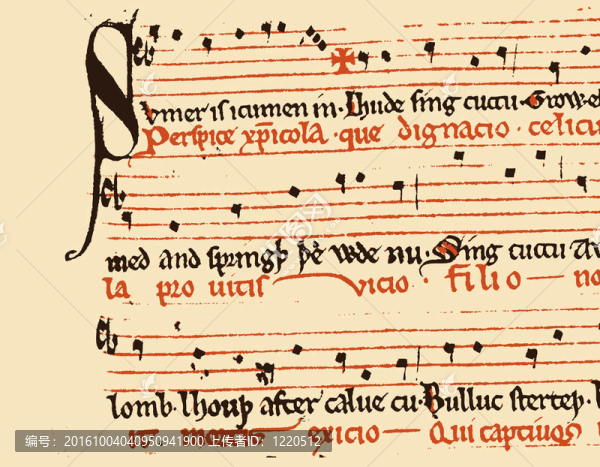 Svmer is icumen in· Lhude sing cuccu· Groweþ
Perspice xp̅icola· que dignacio· celicu
med and springþ þe wde nu· Sing cuccu
la pro uitis vicio· filio— no
lomb· lhouþ after calue cu· Bulluc sterteþ·
exicio— Qui captiuos
编号: 20161004040950941900 上传者ID: 1220512